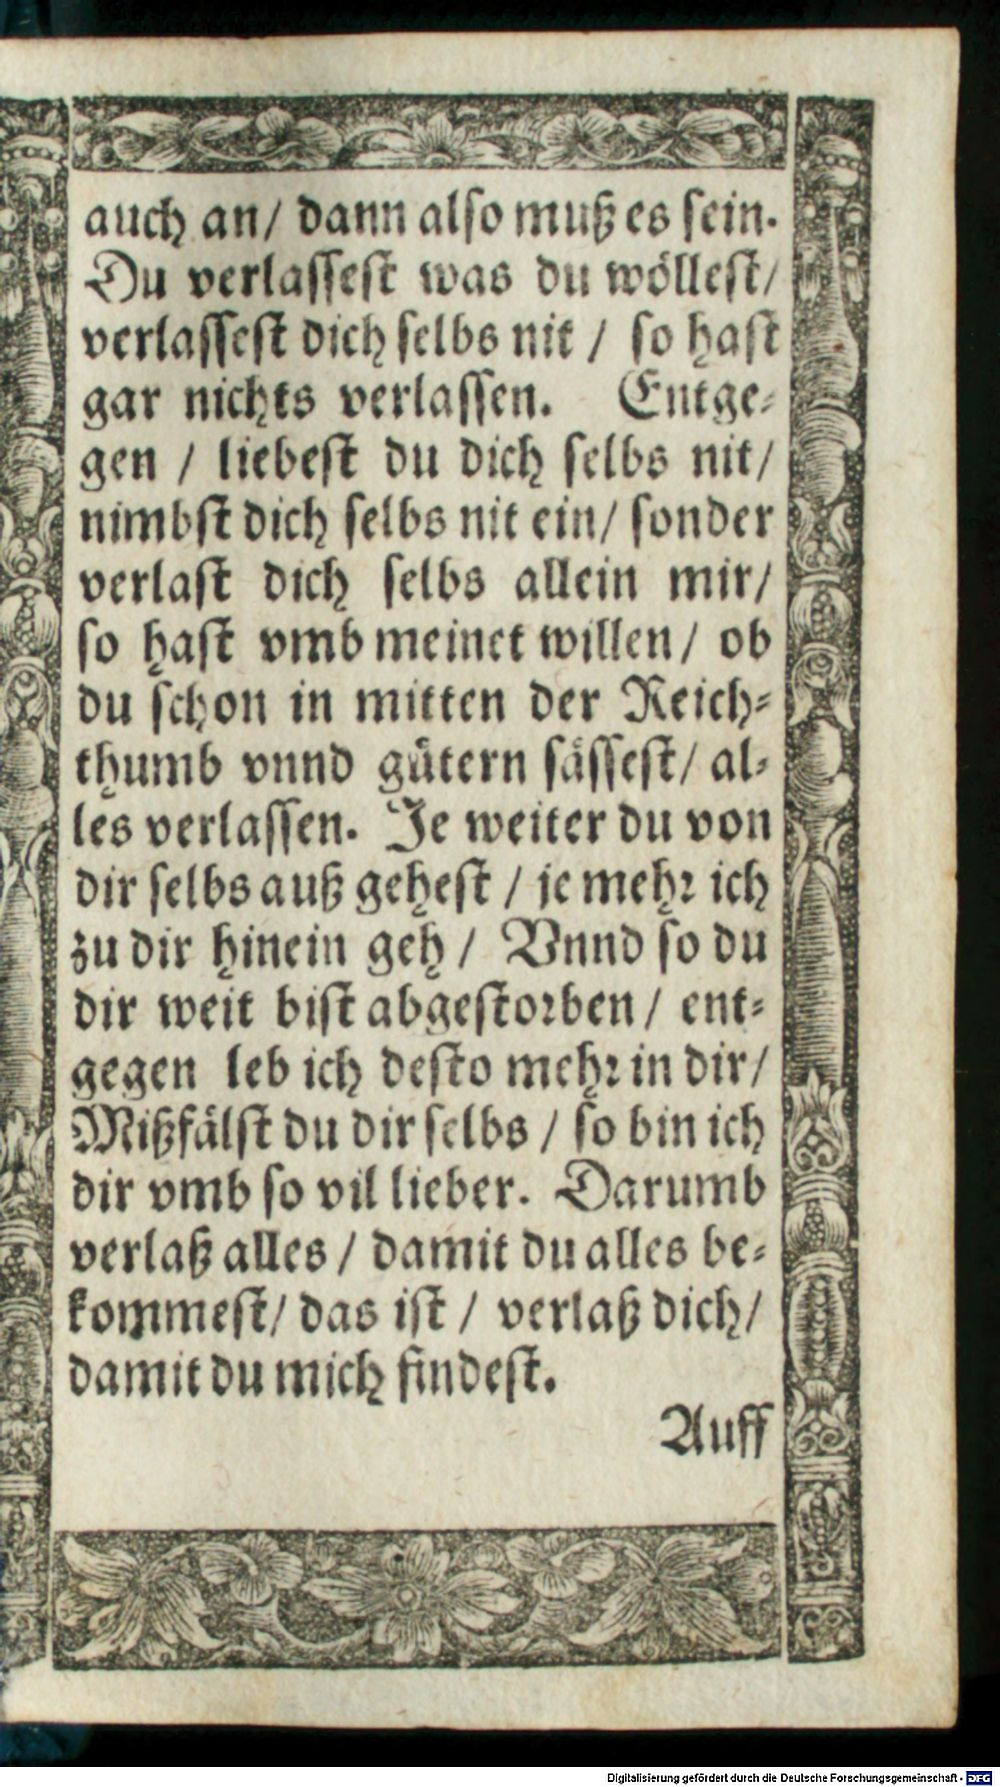 auch an/ dann also muß es sein.
Du verlassest was du wöllest/
verlassest dich selbs nit / so hast
gar nichts verlassen. Entge⸗
gen / liebest du dich selbs nit/
nimbst dich selbs nit ein/ sonder
verlast dich selbs allein mir/
so hast vmb meinet willen/ ob
du schon in mitten der Reich⸗
thumb vnnd gütern sässest/ al⸗
les verlassen. Je weiter du von
dir selbs auß gehest / je mehr ich
zu dir hinein geh / Vnnd so du
dir weit bist abgestorben / ent⸗
gegen leb ich desto mehr in dir/
Mißfälst du dir selbs / so bin ich
dir vmb so vil lieber. Darumb
verlaß alles / damit du alles be⸗
kommest/ das ist / verlaß dich/
damit du mich findest.
Auff
Digitalisierung gefördert durch die Deutsche Forschungsgemeinschaft - DFG